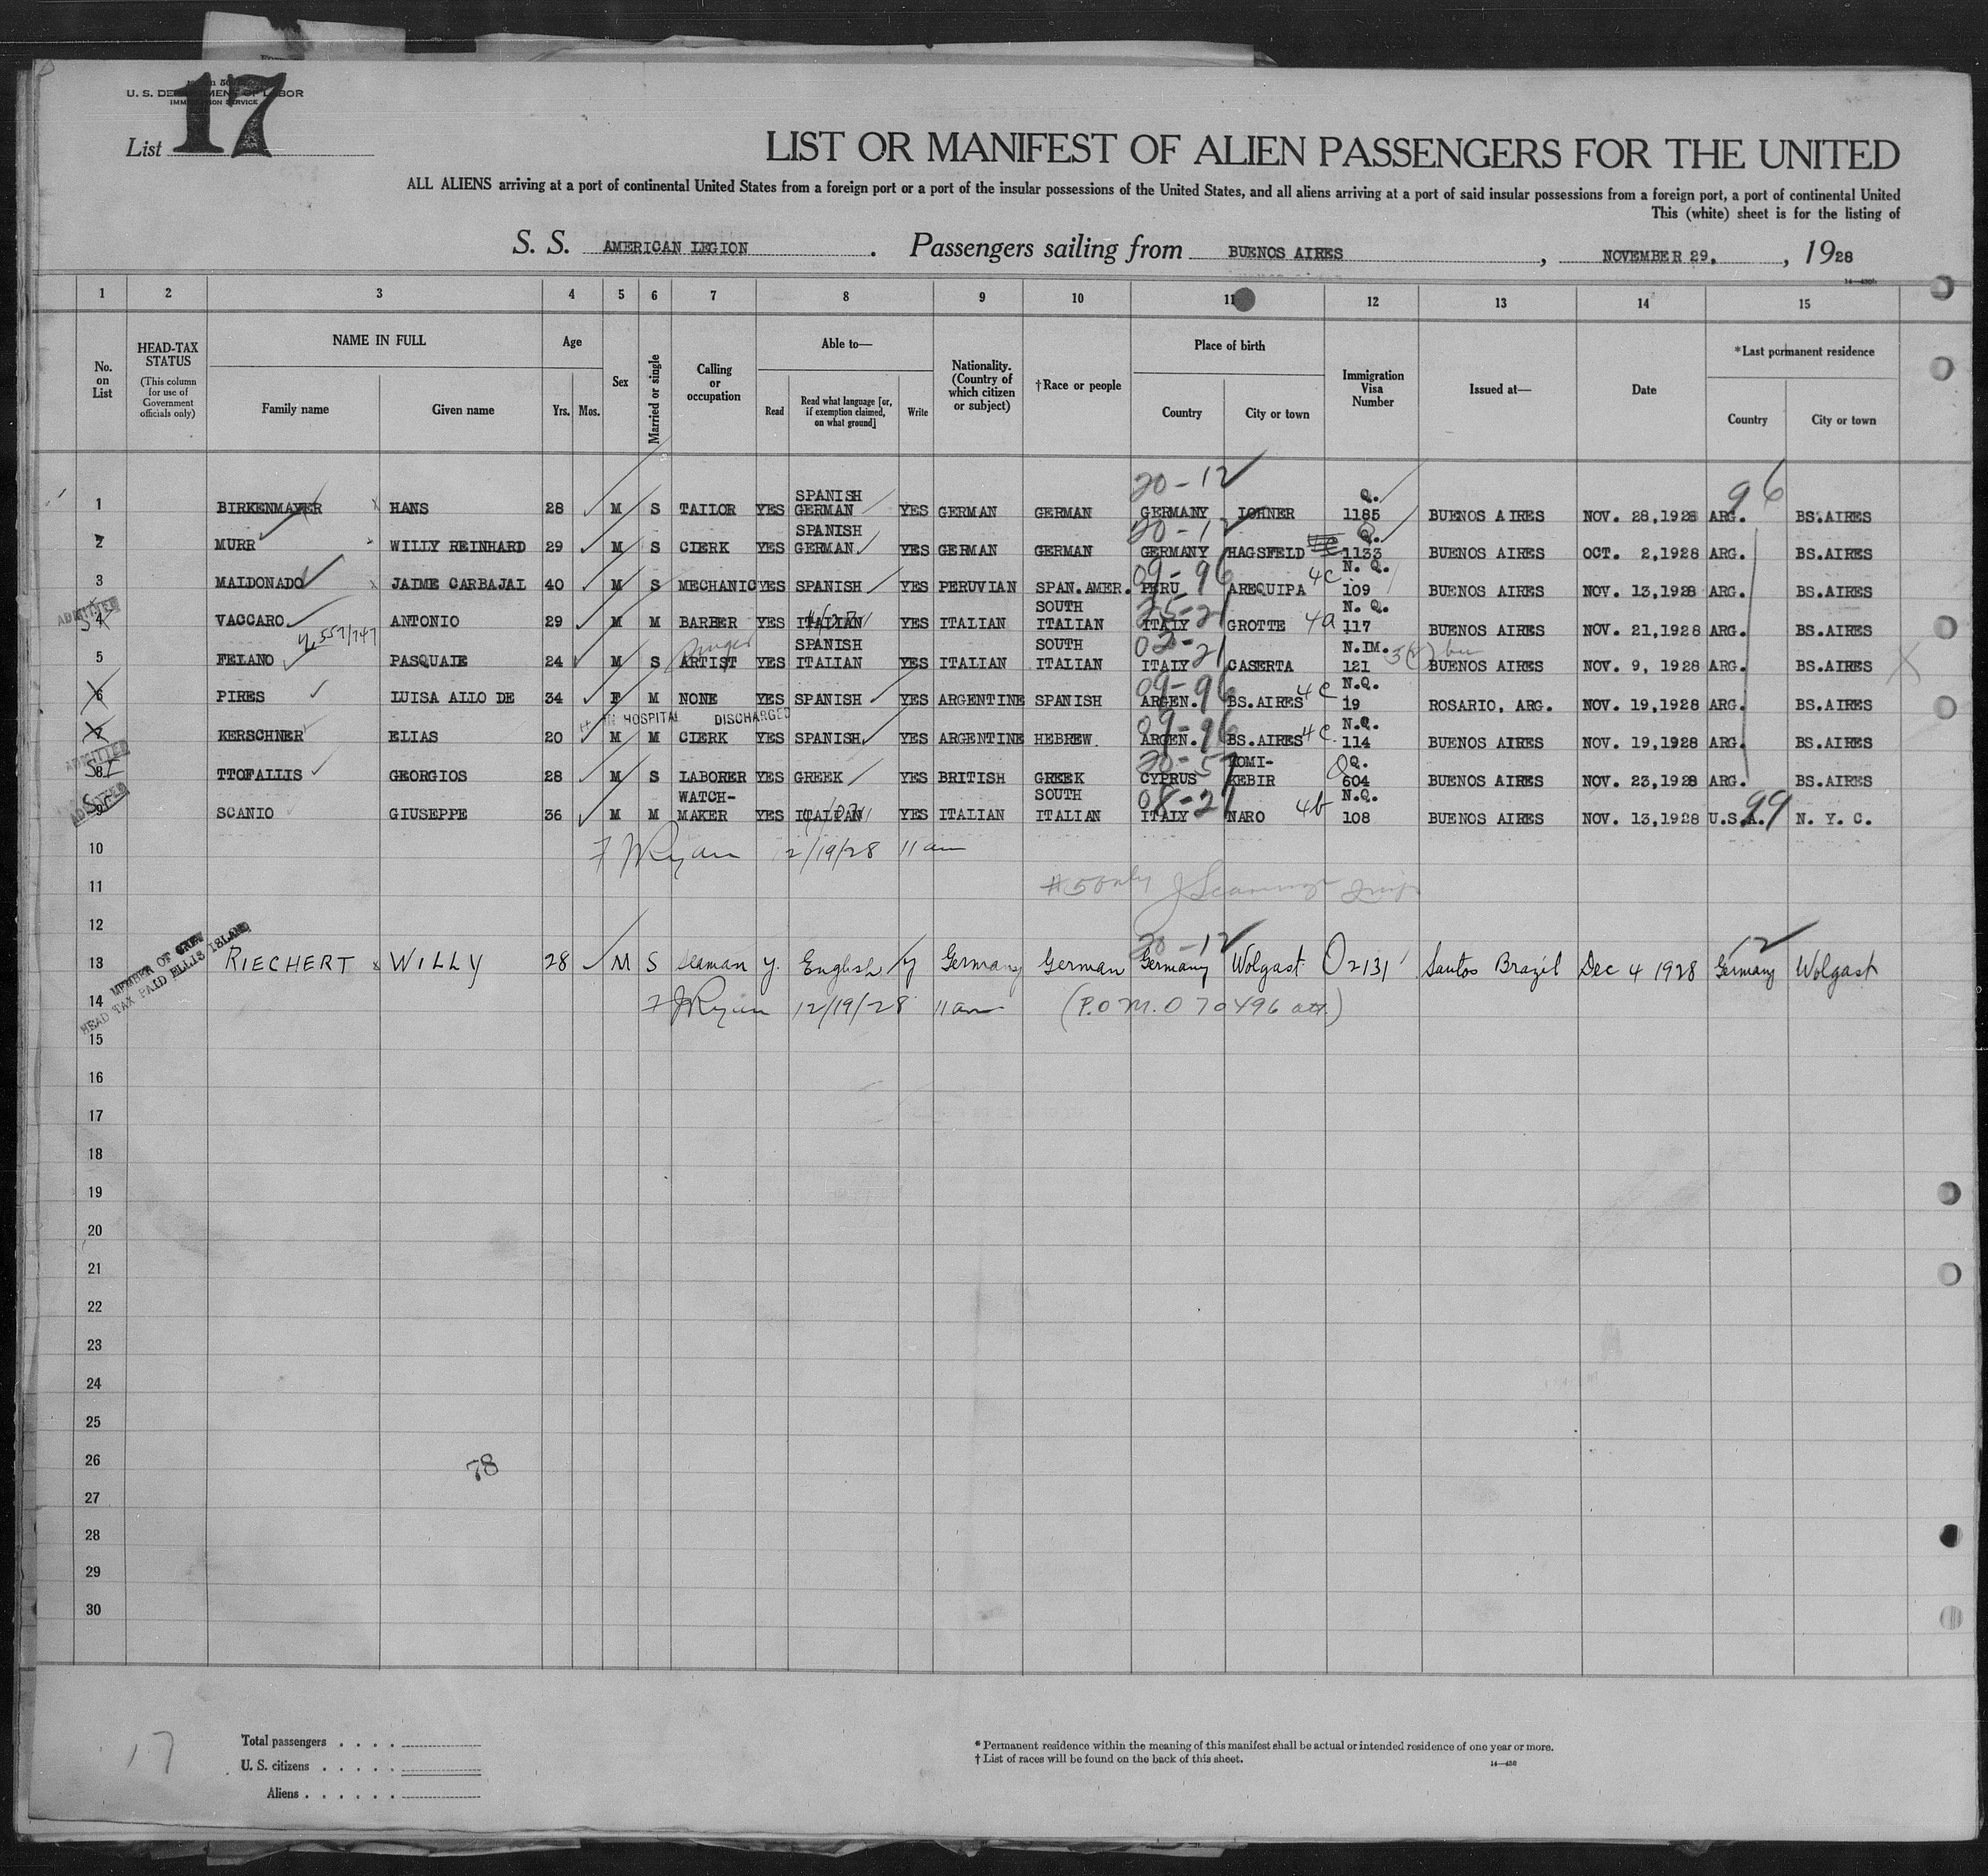 17
U. S. DEPARTMENT OF LABOR
IMMIGRATION SERVICE
List
LIST OR MANIFEST OF ALIEN PASSENGERS FOR THE UNITED
ALL ALIENS arriving at a port of continental United States from a foreign port or a port of the insular possessions of the United States, and all aliens arriving at a port of said insular possessions from a foreign port, a port of continental United
This (white) sheet is for the listing of
S. S. AMERICAN LEGION . Passengers sailing from BUENOS AIRES , NOVEMBER 29. , 1928
1 2 3 4 5 6 7 8 9 10 11 12 13 14 15
No. on List
HEAD-TAX STATUS
(This column for use of Government officials only)
NAME IN FULL
Family name Given name
Age
Yrs. Mos.
Sex
Married or single
Calling or occupation
Able to—
Read
Read what language [or, if exemption claimed, on what ground]
Write
Nationality. (Country of which citizen or subject)
†Race or people
Place of birth
Country City or town
Immigration Visa Number
Issued at—
Date
*Last permanent residence
Country City or town
20-12 96
SPANISH Q.
1 BIRKENMAYER HANS 28 M S TAILOR YES GERMAN YES GERMAN GERMAN GERMANY IOHNER 1185 BUENOS AIRES NOV. 28,1928 ARG. BS.AIRES
20-12
SPANISH Q.
2 MURR WILLY REINHARD 29 M S CLERK YES GERMAN YES GERMAN GERMAN GERMANY HAGSFELD 1133 BUENOS AIRES OCT. 2,1928 ARG. BS.AIRES
09-96 4C N. Q.
3 MALDONADO JAIME CARBAJAL 40 M S MECHANIC YES SPANISH YES PERUVIAN SPAN.AMER. PERU AREQUIPA 109 BUENOS AIRES NOV. 13,1928 ARG. BS.AIRES
ADMITTED
25-21 SOUTH N. Q.
4 VACCARO ANTONIO 29 M M BARBER YES ITALIAN YES ITALIAN ITALIAN ITALY GROTTE 4a 117 BUENOS AIRES NOV. 21,1928 ARG. BS.AIRES
Singer SPANISH SOUTH 02-21 N.IM.
5 FELANO PASQUALE 24 M S ARTIST YES ITALIAN YES ITALIAN ITALIAN ITALY CASERTA 121 BUENOS AIRES NOV. 9, 1928 ARG. BS.AIRES
09-96 4C N.Q.
6 PIRES LUISA ALLO DE 34 F M NONE YES SPANISH YES ARGENTINE SPANISH ARGEN. BS.AIRES 19 ROSARIO, ARG. NOV. 19,1928 ARG. BS.AIRES
IN HOSPITAL DISCHARGED
09-96 4C N.Q.
7 KERSCHNER ELIAS 20 M M CLERK YES SPANISH YES ARGENTINE HEBREW ARGEN. BS.AIRES 114 BUENOS AIRES NOV. 19,1928 ARG. BS.AIRES
ADMITTED
20-57 KOMI- Q.
8 TTOFALLIS GEORGIOS 28 M S LABORER YES GREEK YES BRITISH GREEK CYPRUS KEBIR 604 BUENOS AIRES NOV. 23,1928 ARG. BS.AIRES
ADMITTED
WATCH- SOUTH 08-21 4b N.Q. 99
9 SCANIO GIUSEPPE 36 M M MAKER YES ITALIAN YES ITALIAN ITALIAN ITALY NARO 108 BUENOS AIRES NOV. 13,1928 U.S.A. N. Y. C.
10 F J Ryan 12/19/28 11am
11 #5 only
12
MEMBER OF CREW
HEAD TAX PAID ELLIS ISLAND
20-12 12
13 RIECHERT WILLY 28 M S Seaman y. English y Germany German Germany Wolgast Q 2131 Santos Brazil Dec 4 1928 Germany Wolgast
14 F J Ryan 12/19/28 11am (P.O M.O 70496 att.)
15
16
17
18
19
20
21
22
23
24
25
26
78
27
28
29
30
17
Total passengers . . . .
U. S. citizens . . . . .
Aliens . . . . . .
* Permanent residence within the meaning of this manifest shall be actual or intended residence of one year or more.
† List of races will be found on the back of this sheet.
14—430